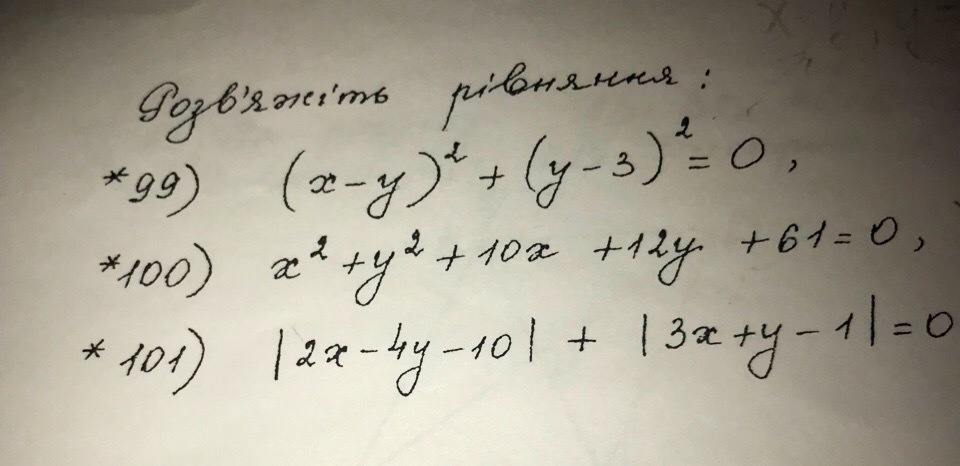 Розв'яжіть рівняння:
*99) (x-y)² + (y-3)² = 0,
*100) x² + y² + 10x + 12y + 61 = 0,
*101) |2x - 4y - 10| + |3x + y - 1| = 0